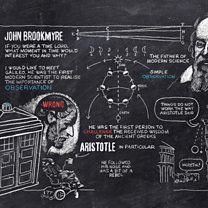 JOHN BROOKMYRE
IF YOU WERE A TIME LORD,
WHAT MOMENT IN TIME WOULD
INTEREST YOU AND WHY?
I WOULD LIKE TO MEET
GALILEO, HE WAS THE FIRST
MODERN SCIENTIST TO REALISE
THE IMPORTANCE OF
OBSERVATION
THE FATHER OF
MODERN SCIENCE
SIMPLE
OBSERVATION
WRONG
THINGS DO NOT
WORK THE WAY
ARISTOTLE SAID
HE WAS THE FIRST PERSON TO
CHALLENGE THE RECEIVED WISDOM
OF THE ANCIENT GREEKS
ARISTOTLE IN PARTICULAR
HE FOLLOWED
HIS NOSE AND
WAS A BIT OF A
REBEL